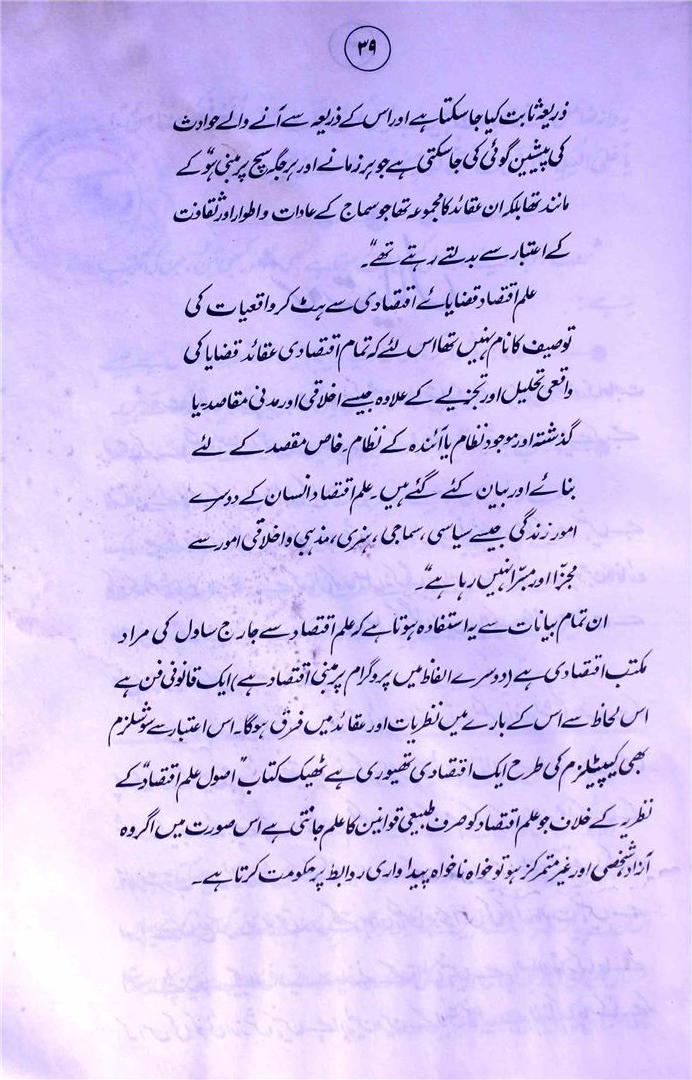 ۳۹
ذریعہ ثابت کیا جا سکتا ہے اور اس کے ذریعہ سے آنے والے حوادث
کی پیشین گوئی کی جا سکتی ہے جو ہر زمانے اور ہر جگہ سچ پر مبنی ہو" کے
مانند تھا بلکہ ان عقائد کا مجموعہ تھا جو سماج کے عادات و اطوار اور ثقافت
کے اعتبار سے بدلتے رہتے تھے"۔
علم اقتصاد قضایائے اقتصادی سے ہٹ کر واقعیات کی
توصیف کا نام نہیں تھا اس لئے کہ تمام اقتصادی عقائد قضایا کی
واقعی تحلیل اور تجزیے کے علاوہ جیسے اخلاقی اور مدنی مقاصد۔ یا
گذشتہ اور موجود نظام یا آئندہ کے نظام۔ خاص مقصد کے لئے
بنائے اور بیان کئے گئے ہیں۔ علم اقتصاد انسان کے دوسرے
امور زندگی جیسے سیاسی، سماجی، ہنری، مذہبی و اخلاقی امور سے
مجزّا اور مبرّا نہیں رہا ہے"۔
ان تمام بیانات سے یہ استفادہ ہوتا ہے کہ علم اقتصاد سے جارج ساول کی مراد
مکتب اقتصادی ہے (دوسرے الفاظ میں پروگرام پر مبنی اقتصاد ہے) ایک قانونی فن ہے
اس لحاظ سے اس کے بارے میں نظریات اور عقائد میں فرق ہوگا۔ اس اعتبار سے سوشلزم
بھی کیپٹلزم کی طرح ایک اقتصادی تھیوری ہے ٹھیک کتاب "اصول علم اقتصاد" کے
نظریہ کے خلاف جو علم اقتصاد کو صرف طبیعی قوانین کا علم جانتی ہے اس صورت میں اگر وہ
آزاد شخصی اور غیر متمرکز ہو تو خواہ ناخواہ پیداواری روابط پر حکومت کرتا ہے۔